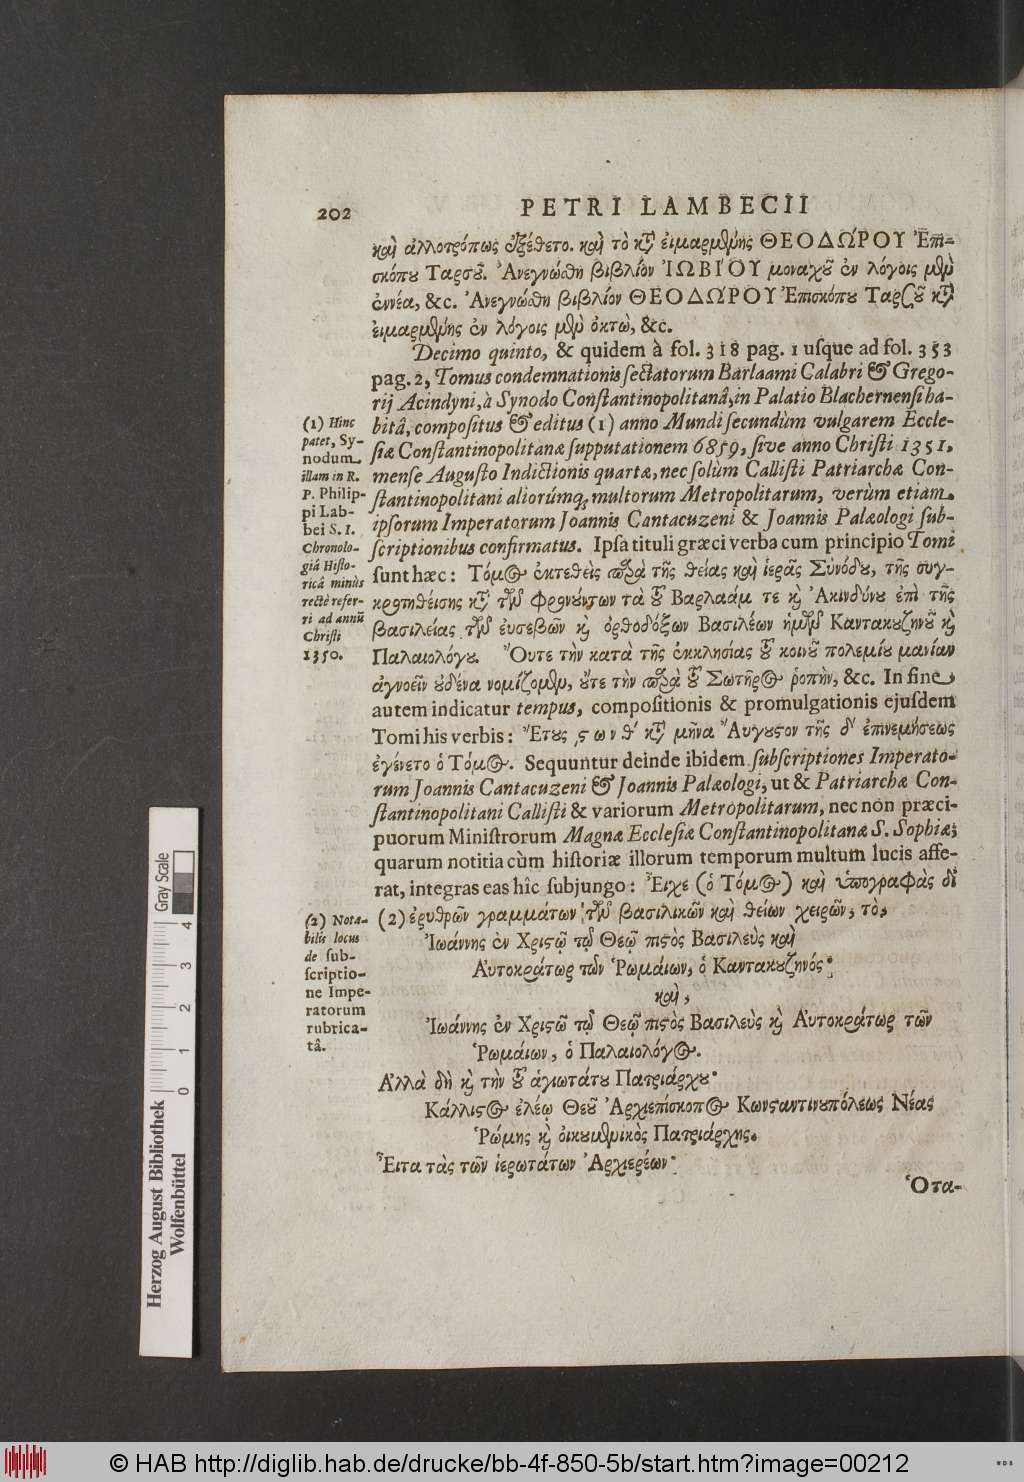 202
PETRI LAMBECII
καὶ ἀλλοτρόπως ἐξέθετο. καὶ τὸ καθ' εἱμαρμένης ΘΕΟΔΩΡΟΥ Ἐπι-
σκόπου Ταρσοῦ. Ἀνεγνώσθη βιβλίον ἸΩΒΙΌΥ μοναχοῦ ἐν λόγοις μὲν
ἐννέα, &c. Ἀνεγνώσθη βιβλίον ΘΕΟΔΩΡΟΥ Ἐπισκόπου Ταρσοῦ καθ'
εἱμαρμένης ἐν λόγοις μὲν ὀκτὼ, &c.
Decimo quinto, & quidem à fol. 318 pag. 1 usque ad fol. 353
pag. 2, Tomus condemnationis sectatorum Barlaami Calabri & Grego-
rij Acindyni, à Synodo Constantinopolitanâ, in Palatio Blachernensi ha-
bitâ, compositus & editus (1) anno Mundi secundùm vulgarem Eccle-
siæ Constantinopolitanæ supputationem 6859, sive anno Christi 1351,
mense Augusto Indictionis quartæ, nec solùm Callisti Patriarchæ Con-
stantinopolitani aliorúmq; multorum Metropolitarum, verùm etiam
ipsorum Imperatorum Joannis Cantacuzeni & Joannis Palæologi sub-
scriptionibus confirmatus. Ipsa tituli græci verba cum principio Tomi
sunt hæc: Τόμος ἐκτεθεὶς παρὰ τῆς θείας καὶ ἱερᾶς Συνόδου, τῆς συγ-
κροτηθείσης κατὰ τῶν φρονούντων τὰ τοῦ Βαρλαάμ τε καὶ Ἀκινδύνου ἐπὶ τῆς
βασιλείας τῶν ἐυσεβῶν καὶ ὀρθοδόξων Βασιλέων ἡμῶν Καντακουζηνοῦ καὶ
Παλαιολόγου. Ὄυτε τὴν κατὰ τῆς ἐκκλησίας τοῦ κοινοῦ πολεμίου μανίαν
ἀγνοεῖν οὐδένα νομίζομεν, οὔτε τὴν παρὰ τοῦ Σωτῆρος ῥοπὴν, &c. In fine
autem indicatur tempus, compositionis & promulgationis ejusdem
Tomi his verbis: Ἔτους ͵ς ω ν θʹ κατὰ μῆνα Ἄυγουστον τῆς δʹ ἐπινεμήσεως
ἐγένετο ὁ Τόμος. Sequuntur deinde ibidem subscriptiones Imperato-
rum Joannis Cantacuzeni & Joannis Palæologi, ut & Patriarchæ Con-
stantinopolitani Callisti & variorum Metropolitarum, nec non præci-
puorum Ministrorum Magnæ Ecclesiæ Constantinopolitanæ S. Sophiæ;
quarum notitia cùm historiæ illorum temporum multum lucis affe-
rat, integras eas hîc subjungo: Ἔιχε (ὁ Τόμος) καὶ ὑπογραφὰς δι'
(2) ἐρυθρῶν γραμμάτων τῶν βασιλικῶν καὶ θείων χειρῶν, τὸ,
Ἰωάννης ἐν Χριστῷ τῷ Θεῷ πιστὸς Βασιλεὺς καὶ
Αὐτοκράτωρ τῶν Ῥωμάιων, ὁ Καντακουζηνός·
καὶ,
Ἰωάννης ἐν Χριστῷ τῷ Θεῷ πιστὸς Βασιλεὺς καὶ Αὐτοκράτωρ τῶν
Ῥωμάιων, ὁ Παλαιολόγος.
Ἀλλὰ δὴ καὶ τὴν τοῦ ἁγιωτάτου Πατριάρχου·
Κάλλιστος ἐλέῳ Θεοῦ Ἀρχιεπίσκοπος Κωνσταντινουπόλεως Νέας
Ῥώμης καὶ ὀικουμενικὸς Πατριάρχης.
Ἔιτα τὰς τῶν ἱερωτάτων Ἀρχιερέων·
Ὁ τα-
(1) Hinc
patet, Sy-
nodum
illam in R.
P. Philip-
pi Lab-
bei S. I.
Chronolo-
giâ Histo-
ricâ minùs
rectè refer-
ri ad annũ
Christi
1350.
(2) Nota-
bilis locus
de sub-
scriptio-
ne Impe-
ratorum
rubrica-
tâ.
Gray Scale
0 1 2 3 4
Herzog August Bibliothek
Wolfenbüttel
© HAB http://diglib.hab.de/drucke/bb-4f-850-5b/start.htm?image=00212